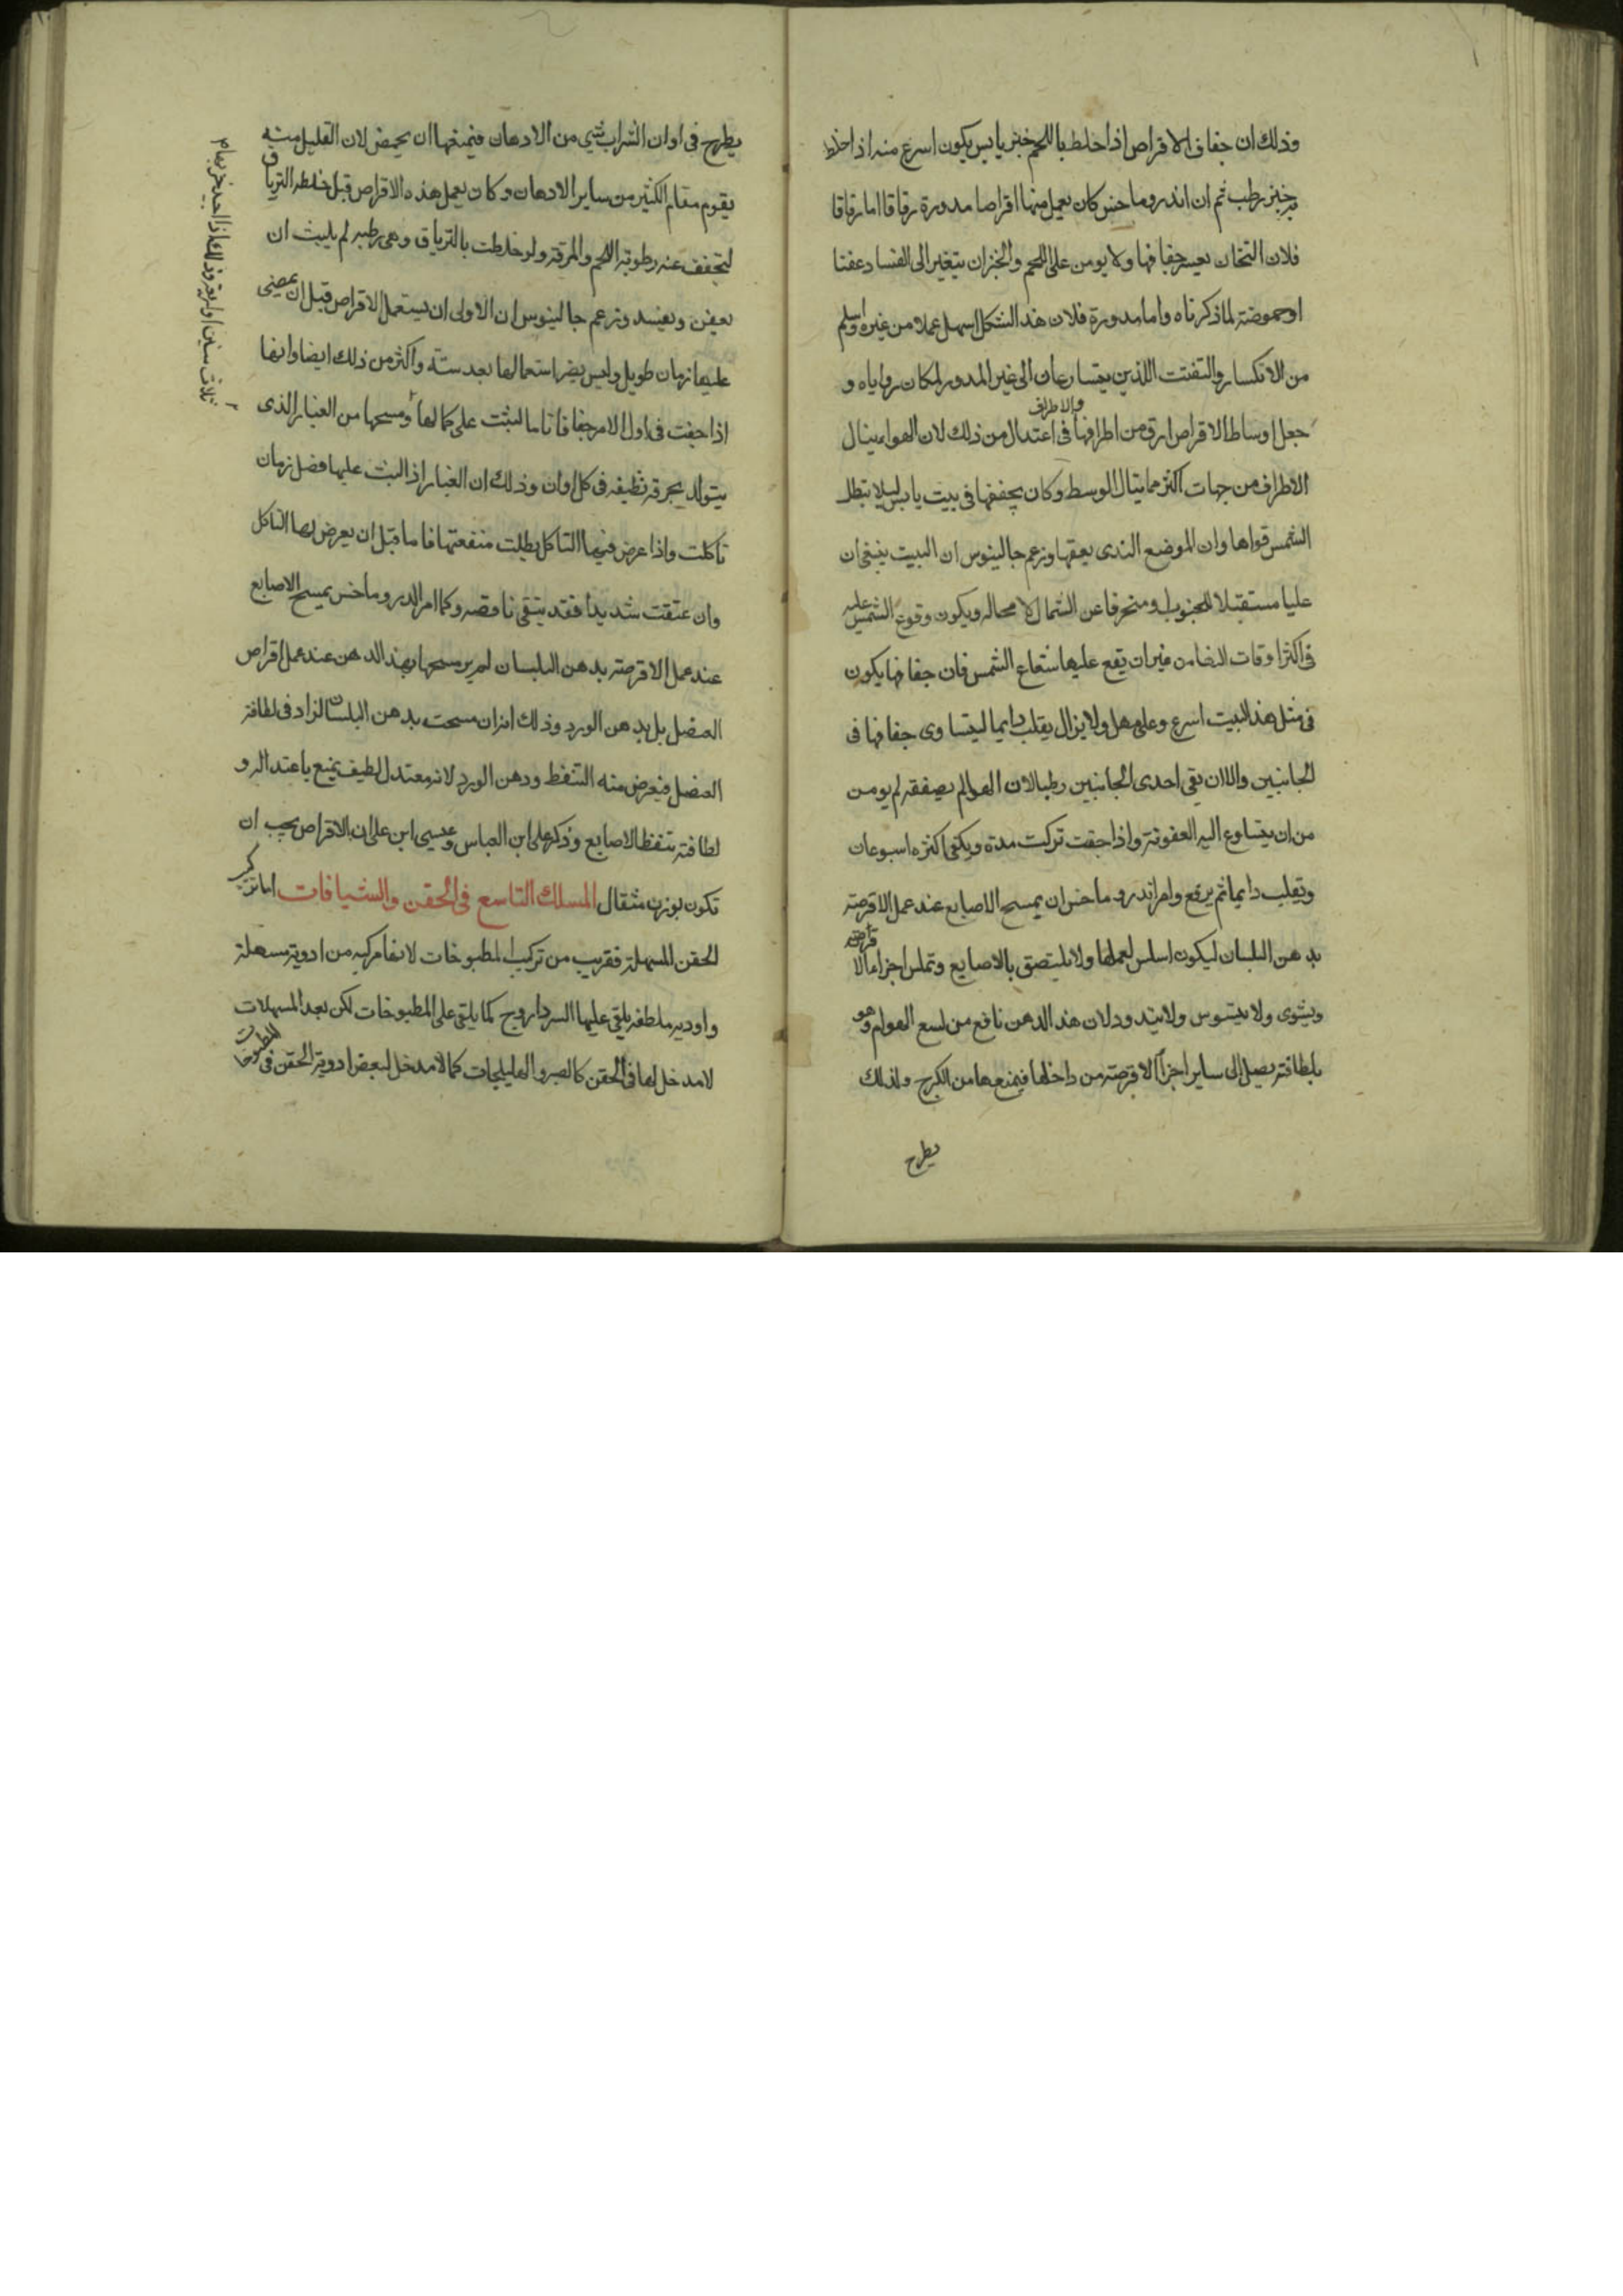 وذلك ان جفاف الاقراص اذا خلط باللحم خبز يابس يكون اسرع منه اذا خلط
به خبز رطب ثم ان اندروماخس كان يعمل منها اقراصا مدورة رقاقا اما رقاقا
فلان الثخان يعسر جفافها ولا يومن على اللحم والخبز ان يتغير الى الفساد عفنا
او حموضة لما ذكرناه واما مدورة فلان هذا الشكل اسهل عملا من غيره واسلم
من الانكسار والتفتت اللذين يتسارعان الى غير المدور لمكان زواياه و
جعل اوساط الاقراص ارق من اطرافها والاطراف فى اعتدال من ذلك لان الهوا ينال
الاطراف من جهات اكثر مما ينال الوسط وكان يجففها فى بيت يابس ليلا تبطل
الشمس قواها وان الموضع الندى يعفنها وزعم جالينوس ان البيت ينبغى ان
عليا مستقبلا للجنوب او منحرفا عن الشمال لا محاله ويكون وقوع الشمس عليه
فى اكثر اوقات النهار من غير ان يقع عليها شعاع الشمس فان جفافها يكون
فى مثل هذا البيت اسرع وعلى مهل ولا يزال يقلب دايما ليتساوى جفافها فى
الجانبين والا ان بقى احدى الجانبين رطبا لان الهوا لم يصفقه لم يومن
من ان يتسارع اليه العفونة واذا جفت تركت مدة ويكفى اكثره اسبوعان
وتقلب دايما ثم يرفع وامر اندروماخس ان يمسح الاصابع عند عمل الاقرصة
بدهن البلسان ليكون اسلس لعملها ولا يلتصق بالاصابع وتملس اجزاء الاقرصة
ويستوى ولا يتسوس ولا يتدود لان هذا الدهن نافع من لسع الهوام وهو
بلطافته يصل الى ساير اجزا الاقرصة من داخلها فيمنعها من الكرج ولذلك
يطرح
يطرح فى اوان الشراب شى من الادهان فيمنعها ان يحمض لان القليل منه
يقوم مقام الكثير من ساير الادهان وكان يعمل هذه الاقراص قبل خلطه الترياق
لتجفف عنه رطوبة اللحم والمرقة ولو خلطت بالترياق وهى رطبه لم يلبث ان
يعفن ويفسد وزعم جالينوس ان الاولى ان يستعمل الاقراص قبل ان يمضى
عليها زمان طويل وليس يضر استعمالها بعد سنة واكثر من ذلك ايضا وانها
اذا جفت فى اول الامر جفافا تاما لبثت على كمالها ومسحها من الغبار الذى
يتولد بخرقة نظيفه فى كل اوان وذلك ان الغبار اذا لبث عليها فضل زمان
تاكلت واذا عرض فيها التاكل بطلت منفعتها فاما قبل ان يعرض لها التاكل
وان عتقت شديدا فقد يبقى ناقصه وكما امر اندروماخس بمسح الاصابع
عند عمل الاقرصة بدهن البلسان لم ير مسحها بهذا الدهن عند عمل اقراص
العنصل بل بدهن الورد وذلك انه ان مسحت بدهن البلسان لزاد فى لطافة
العنصل فيعرض منه التنفط ودهن الورد لانه معتدل لطيف يمنع باعتداله و
لطافته تنفط الاصابع وذكر على ابن العباس وعيسى ابن على ان الاقراص يجب ان
تكون بوزن مثقال المسلك التاسع فى الحقن والشيافات اما تركيب
الحقن المسهلة فقريب من تركيب المطبوخات لانها مركبه من ادوية مسهلة
وادويه ملطفه يلقى عليها السرداروج كما يلقى على المطبوخات لكن بعد المسهلات
لا مدخل لها فى الحقن كالصبر والهليلجات كما لا مدخل لبعض ادوية الحقن فى المطبوخات